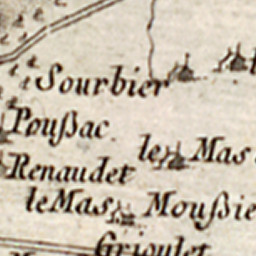 Sourbier
Poußac.
le Mas
Renaudet
le Mas Moußie
Grioulet